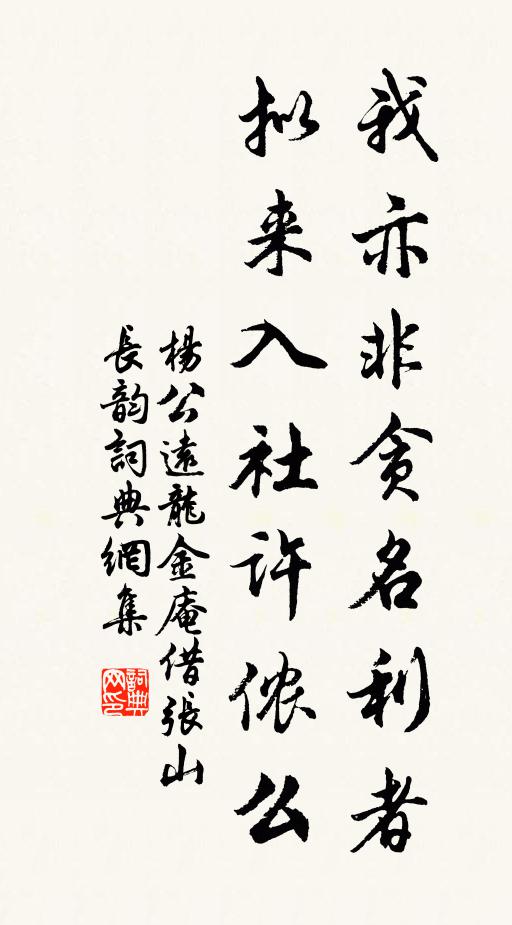 我亦非贪名利者
拟来入社许侬么
楊公遠龍金庵借張山
長韵詞典網集
詞典网印